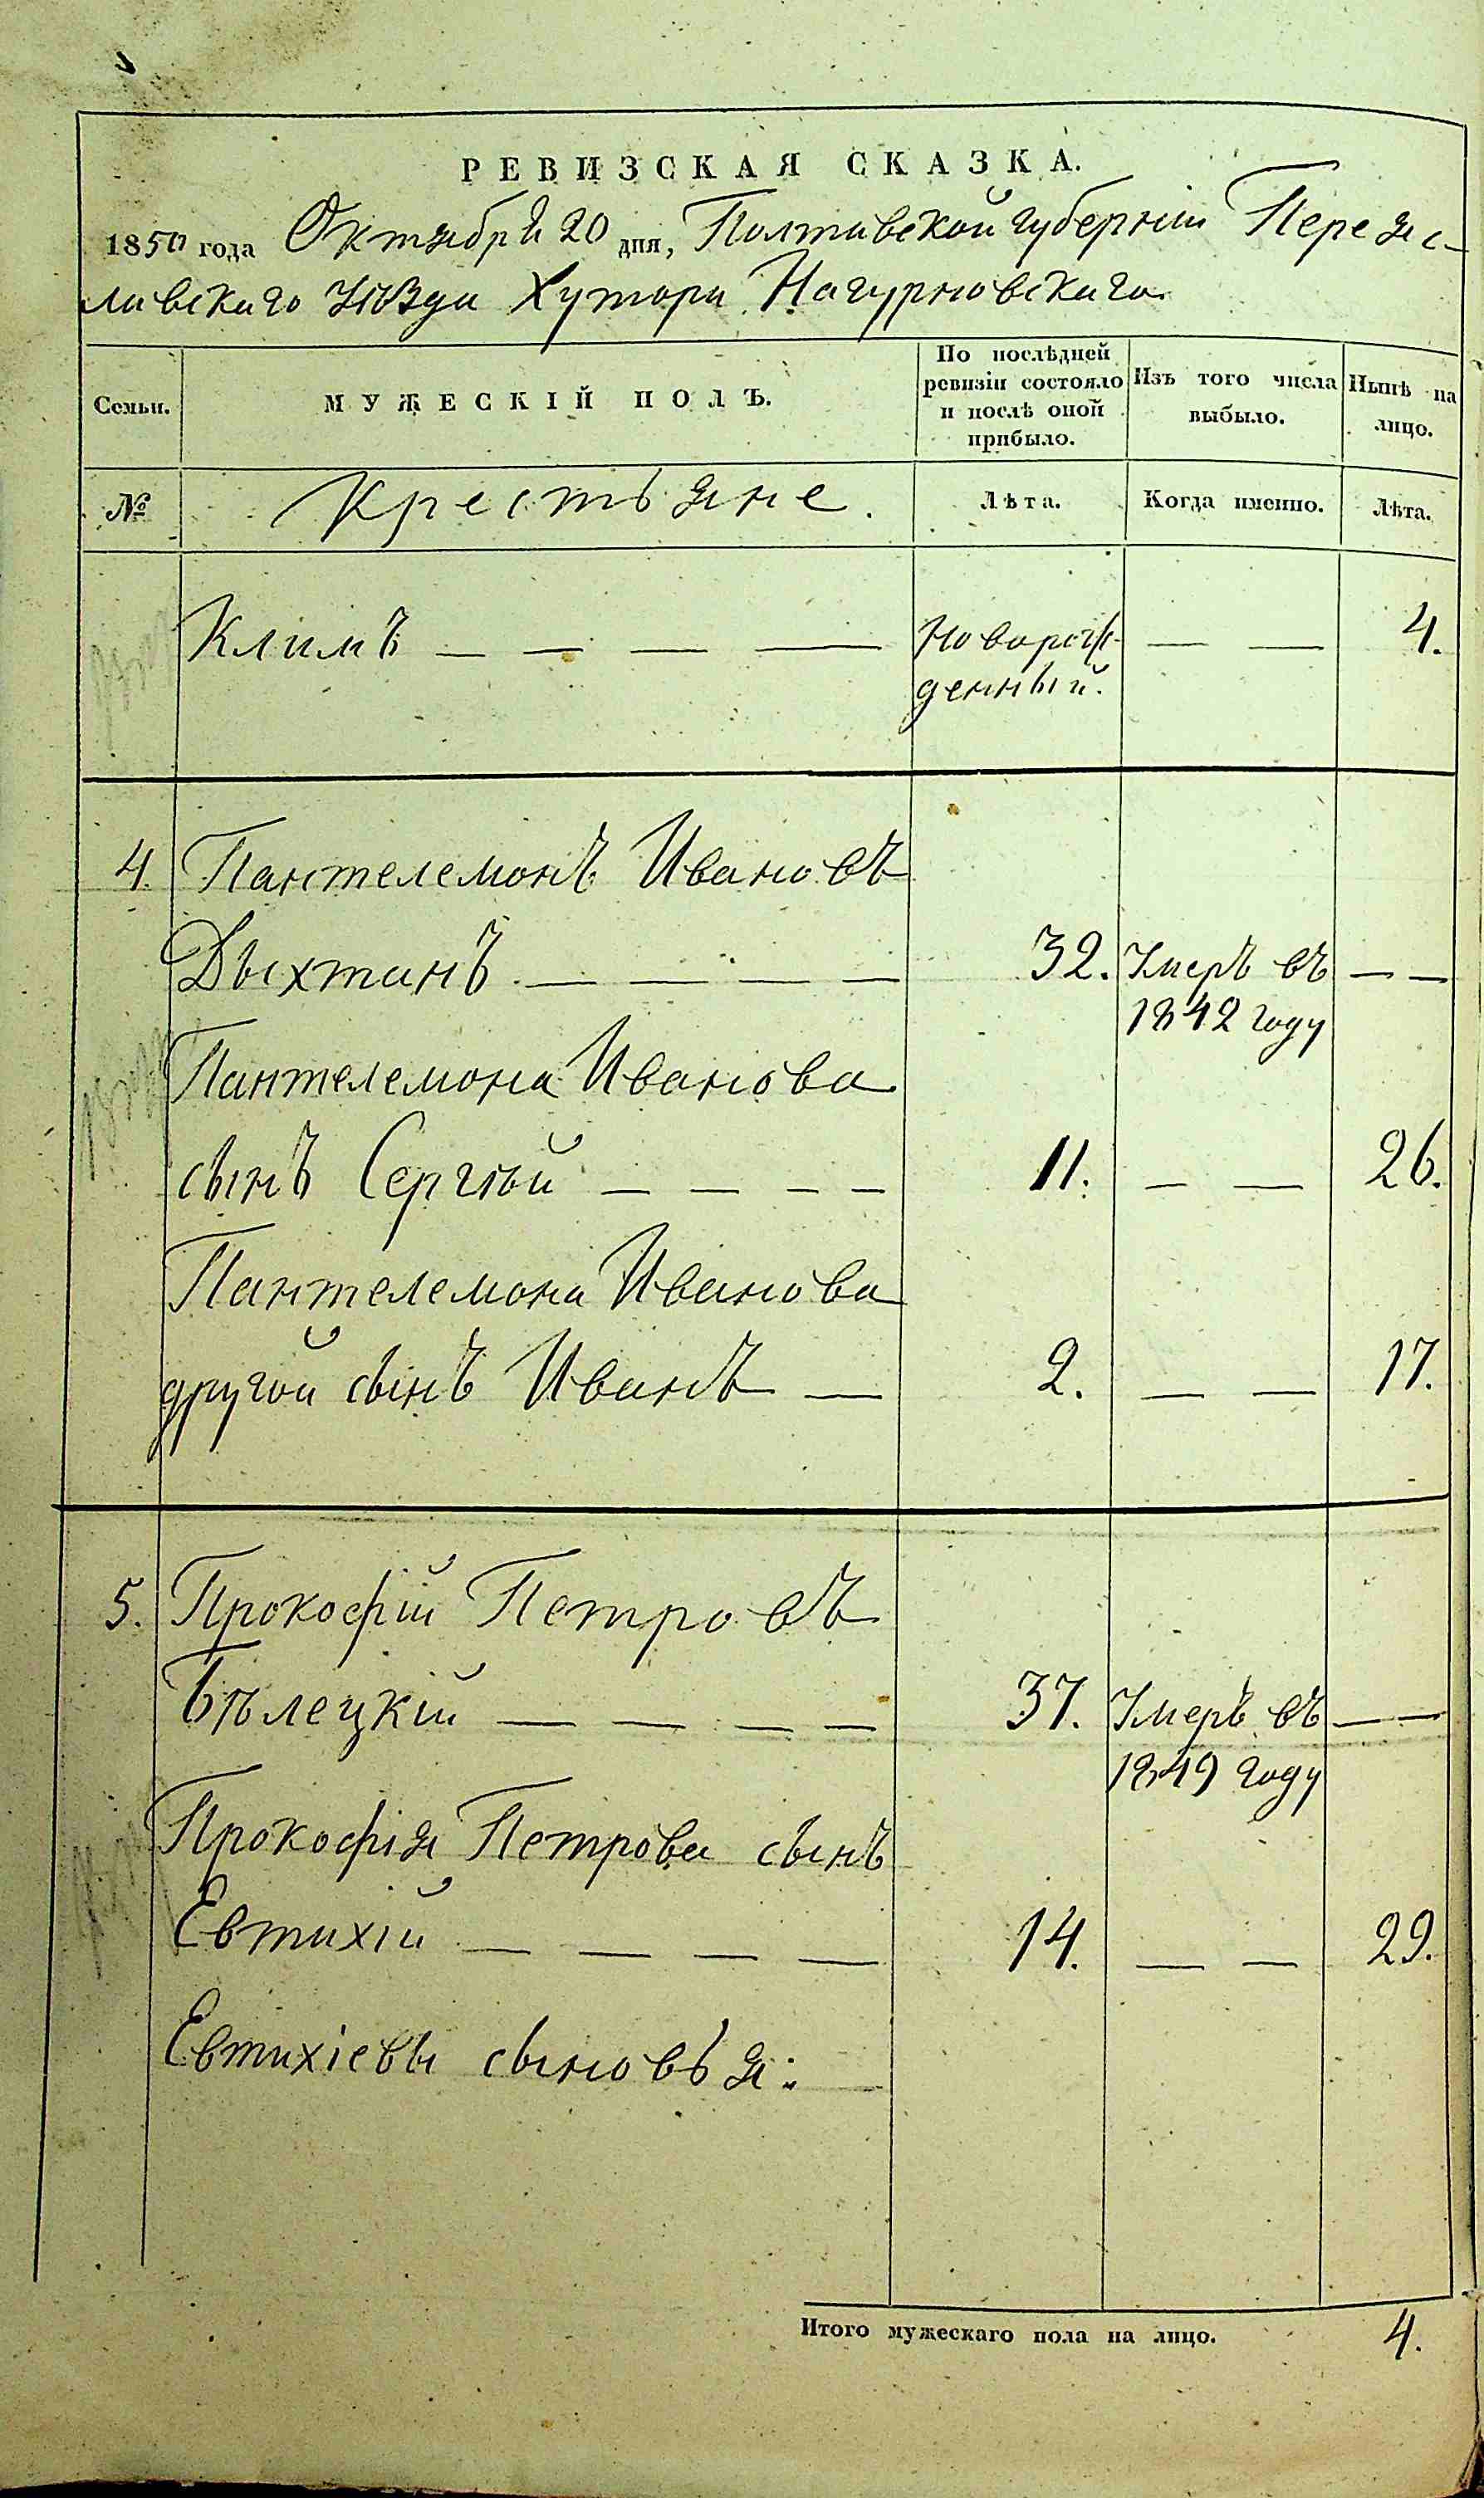 РЕВИЗСКАЯ СКАЗКА.
1850 года Октября 20 дня, Полтавской губерніи Переяс-
лавскаго уѣзда Хутора Нагурновскаго
Семьи. МУЖЕСКІЙ ПОЛЪ. По послѣдней ревизіи состояло и послѣ оной прибыло. Изъ того числа выбыло. Нынѣ на лицо.
№ Крестьяне. Лѣта. Когда именно. Лѣта.
Климъ — — — — Новорож- — — 4.
денный.
4. Пантелемонъ Ивановъ
Дыхтанъ — — — — 32. Умеръ въ — —
1842 году
Пантелемона Иванова
сынъ Сергѣй — — — — 11. — — 26.
Пантелемона Иванова
другой сынъ Иванъ — 2. — — 17.
5. Прокофій Петровъ
Бѣлецкій — — — — 37. Умеръ въ — —
1849 году
Прокофія Петрова сынъ
Евтихій — — — — 14. — — 29.
Евтихіевы сыновья:
Итого мужескаго пола на лицо. 4.